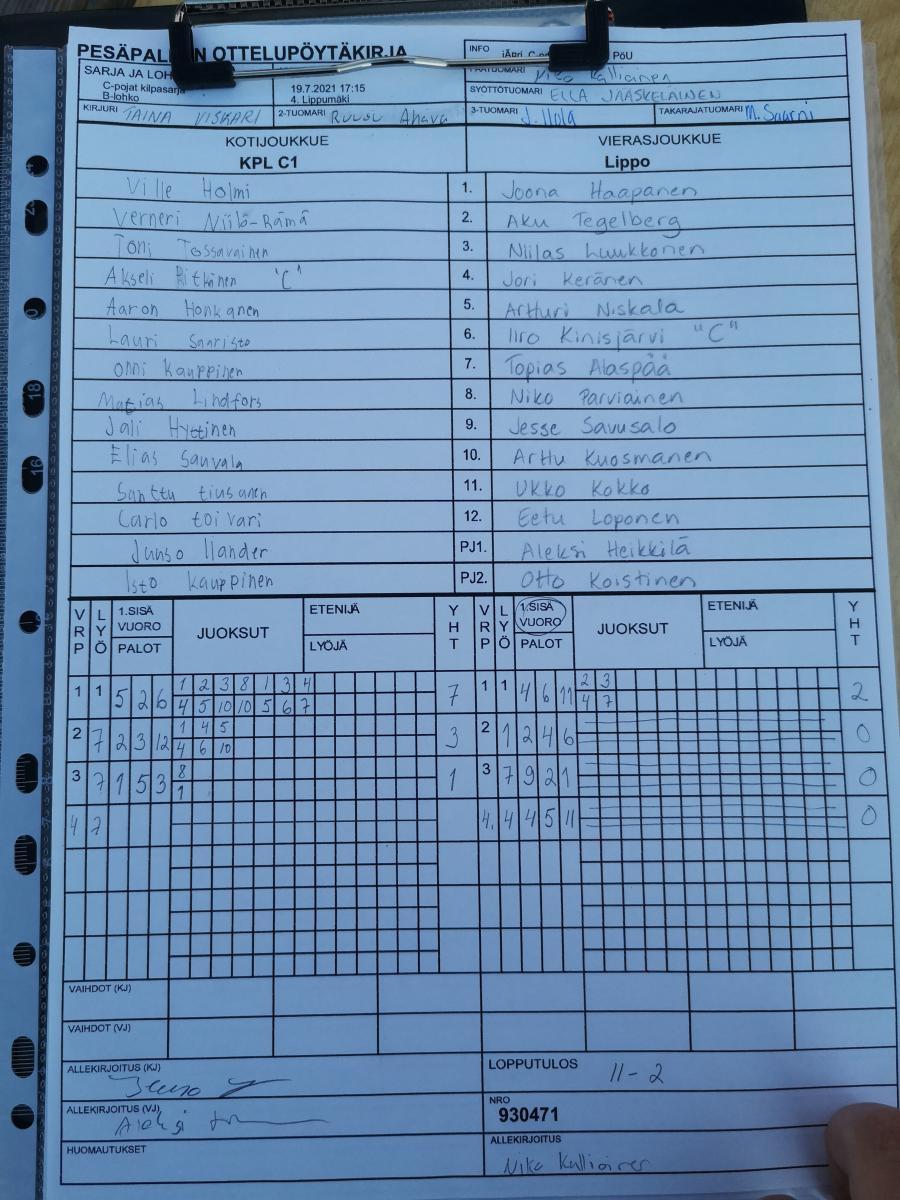 PESÄPAL N OTTELUPÖYTÄKIRJA
INFO PöU
SARJA JA LOH
C-pojat kilpasarja
B-lohko
19.7.2021 17:15
4. Lippumäki
Niko Kallioinen
SYÖTTÖTUOMARI ELLA JÄÄSKELÄINEN
KIRJURI TAINA VISKARI 2-TUOMARI Ruusu Ahava 3-TUOMARI J. Ilola TAKARAJATUOMARI M. Saarni
KOTIJOUKKUE VIERASJOUKKUE
KPL C1 Lippo
Ville Holmi 1. Joona Haapanen
Verneri Niilö-Rämä 2. Aku Tegelberg
Toni Tossavainen 3. Niilas Luukkonen
Akseli Pitkänen "C" 4. Jori Keränen
Aaron Honkanen 5. Artturi Niskala
Lauri Saaristo 6. Iiro Kinisjärvi "C"
Onni Kauppinen 7. Topias Alaspää
Matias Lindfors 8. Niko Parviainen
Jali Hyttinen 9. Jesse Savusalo
Elias Sauvala 10. Arttu Kuosmanen
Santtu tiusanen 11. Ukko Kokko
Carlo toivari 12. Eetu Loponen
Juuso Ilander PJ1. Aleksi Heikkilä
Isto Kauppinen PJ2. Otto Koistinen
VRP LYÖ 1.SISÄ VUORO PALOT JUOKSUT ETENIJÄ LYÖJÄ YHT VRP LYÖ 1.SISÄ VUORO PALOT JUOKSUT ETENIJÄ LYÖJÄ YHT
1 1 5 2 6 1 2 3 8 1 3 4 7 1 1 4 6 11 2 3 2
4 5 10 10 5 6 7 4 7
2 7 2 3 12 1 4 5 3 2 1 2 4 6 0
4 6 10
3 7 1 5 3 8 1 3 7 9 2 1 0
1
4 7 4. 4 4 5 11 0
VAIHDOT (KJ)
VAIHDOT (VJ)
ALLEKIRJOITUS (KJ) LOPPUTULOS 11-2
ALLEKIRJOITUS (VJ) Aleksi NRO
930471
HUOMAUTUKSET ALLEKIRJOITUS
Niko Kallioinen